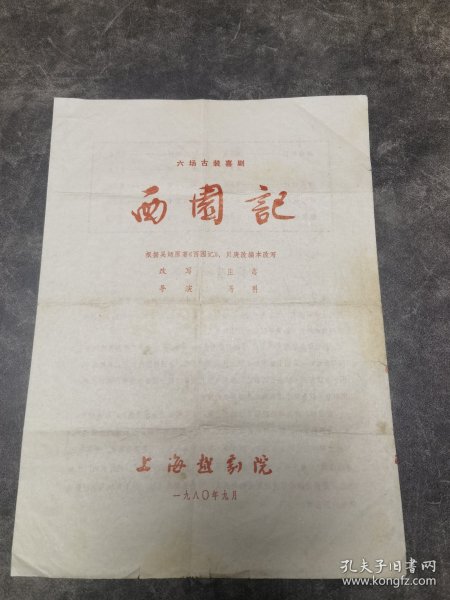 六场古装喜剧
西園記
根据吴炳原著《西园记》，贝庚改编本改写
改写
导演
上海越剧院
一九八〇年九月
孔夫子旧书网
www.kongfz.com